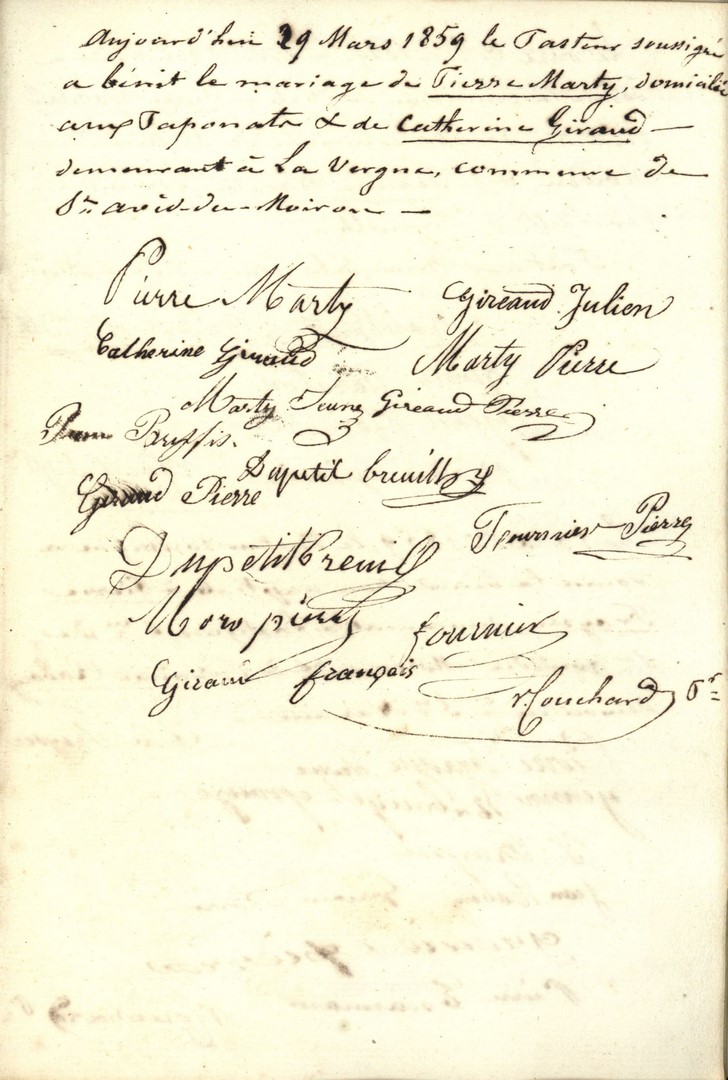 Aujourd'hui 29 Mars 1859 le Pasteur soussigné
a bénit le mariage de Pierre Marty, domicilié
aux Taponats & de Catherine Giraud —
demeurant à La Vergne, commune de
St avid-du-Moiron —
Pierre Marty Gireaud Julien
Catherine Giraud Marty Pierre
Marty Jeune Gireaud Pierre
Giraud Pierre Dupetit breuilh
Dupetitbreuil Fournier Pierre
Moro pierre fournier
Giraud françois
Couchard